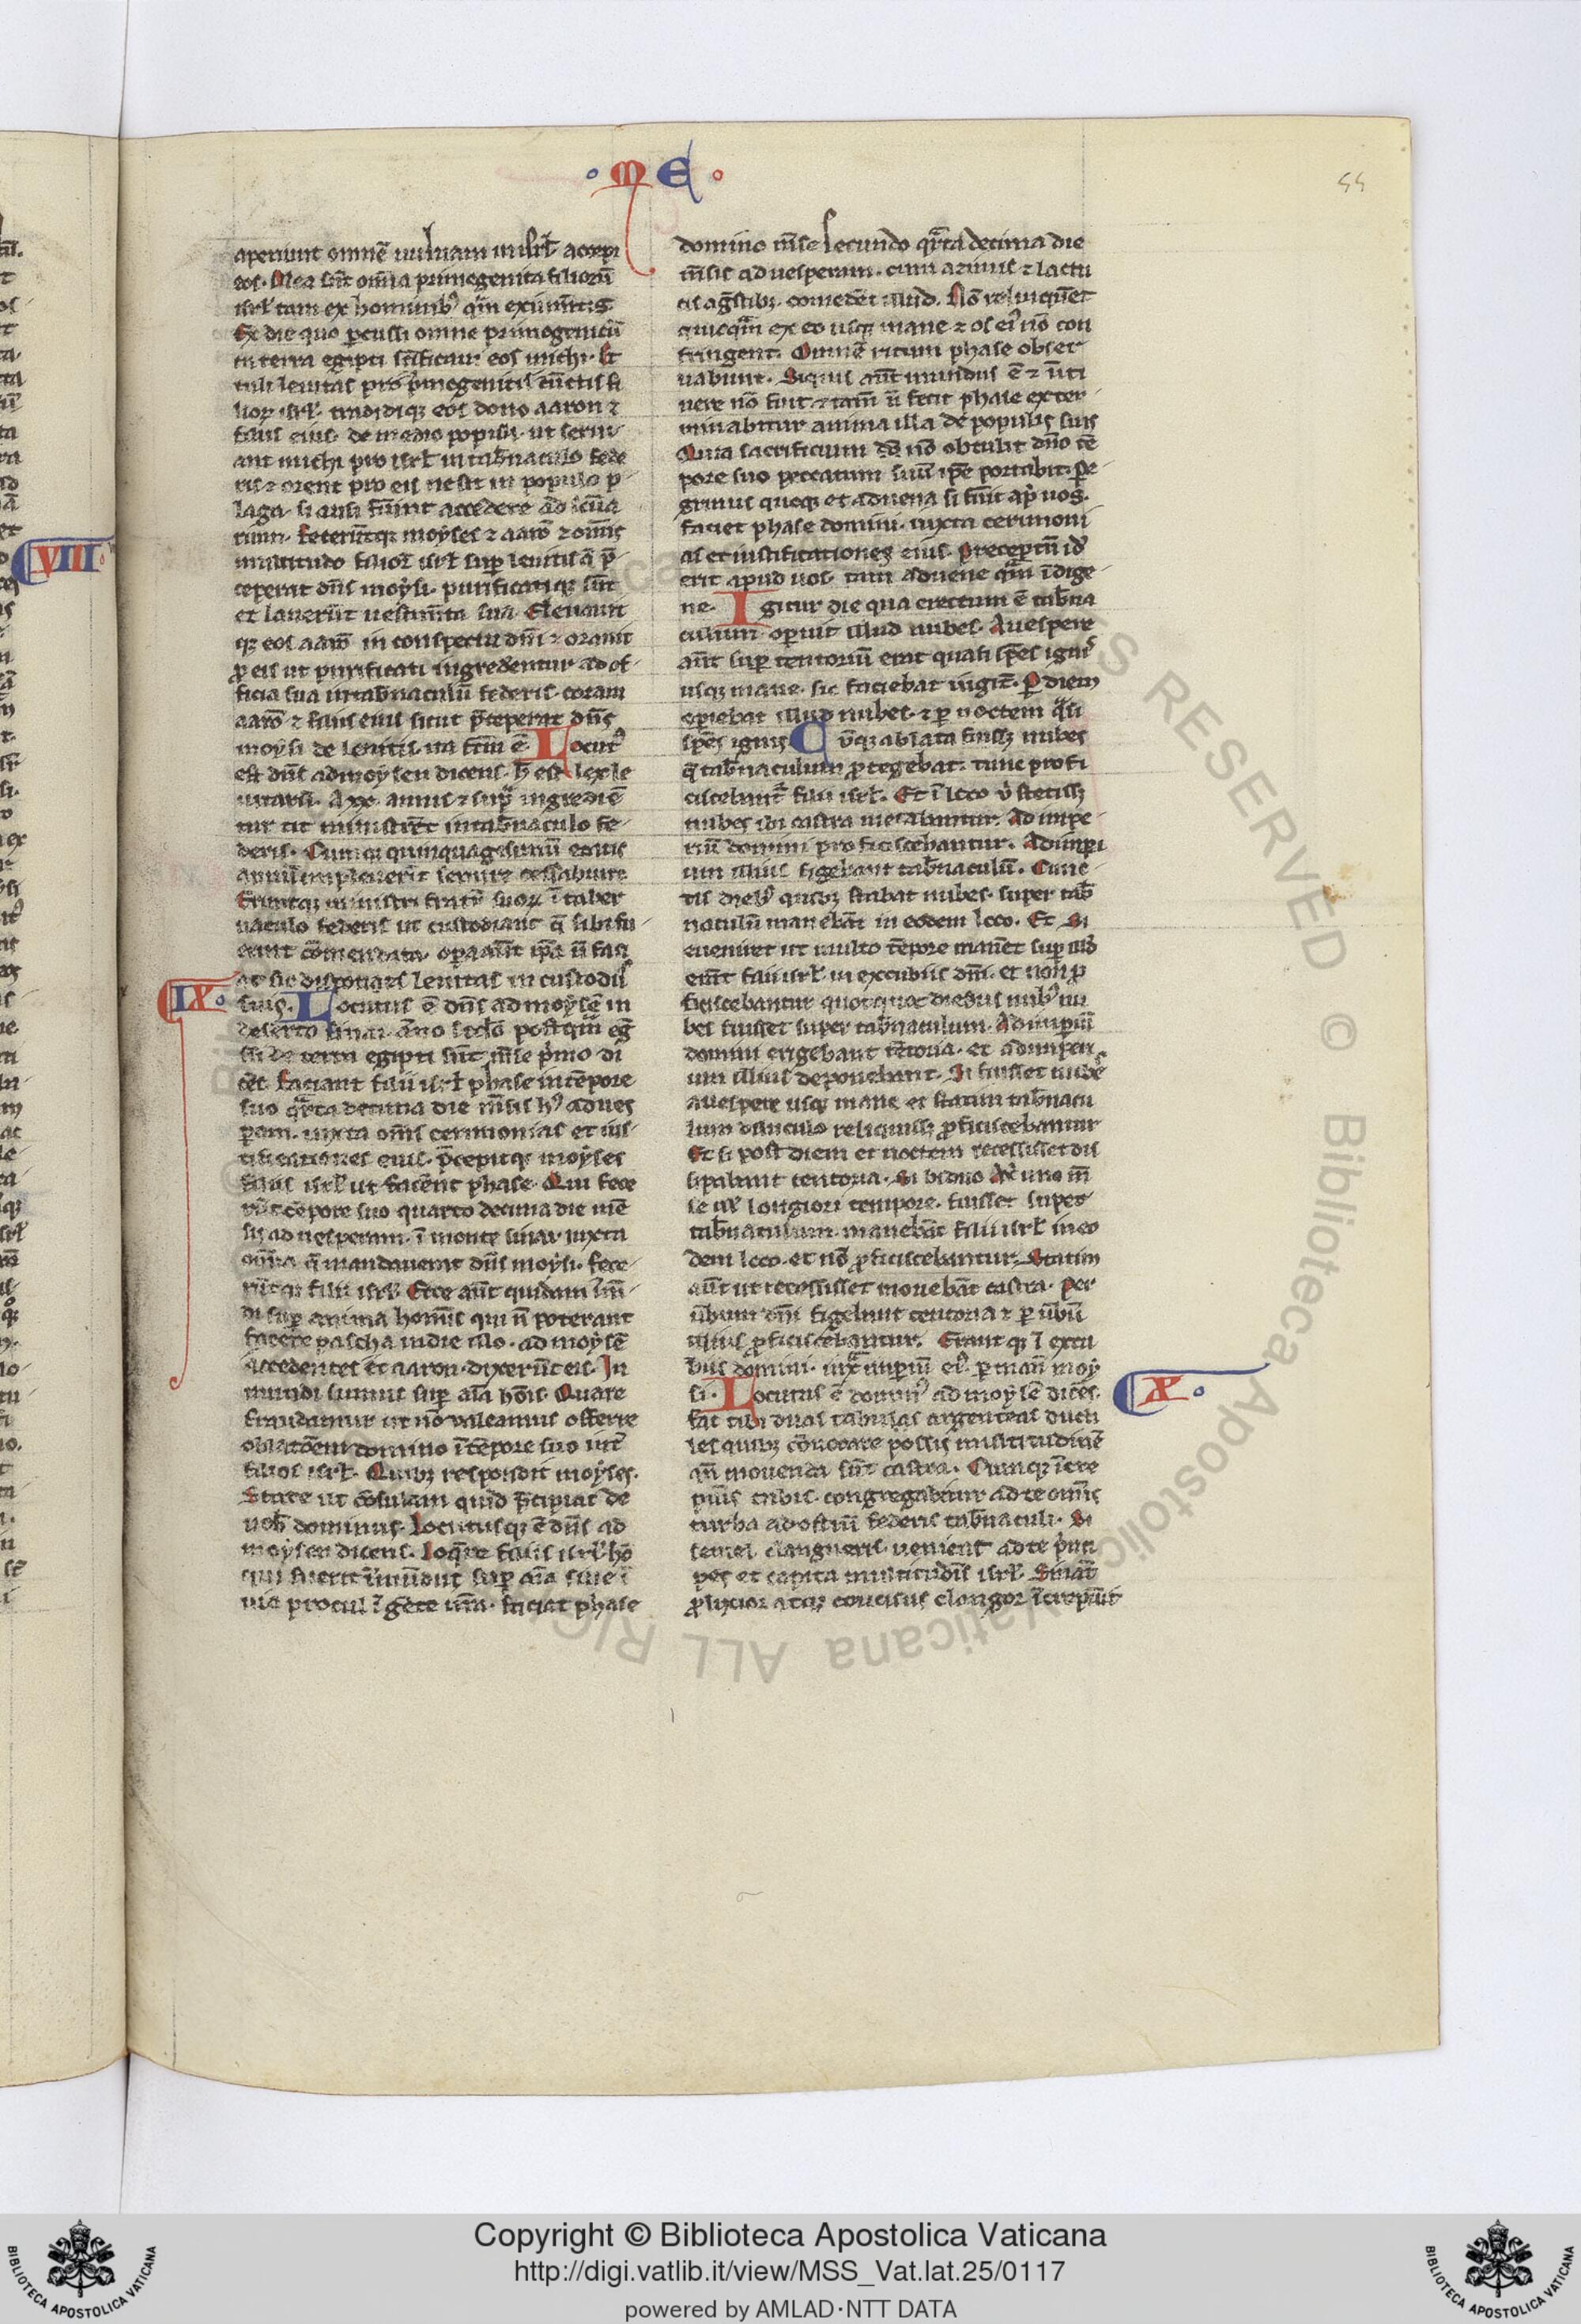 · M E ·
55
aperiunt omnē uuluam in isrł accepi
eos. Mea sūt omīa primogenita filiorū
isrł tam ex hominibꝰ qᵃm ex iumētis
Ex die quo ꝑcussi omne primogenitū
in terra egipti sc̄ificaui eos michi. Et
tuli leuitas pro pⁱmogenitis cūctis fi
lioꝝ isrł. tradidiqꝫ eos dono aaron ⁊
filiis eius de medio populi. ut serui
ant michi pro isrł in tab̄naculo fede
ris ⁊ orent pro eis ne sit in populo p
laga. si ausi fūint accedere ad sc̄ua
rium. feceruntqꝫ moyses ⁊ aarō ⁊ om̄is
multitudo filioꝝ isrł suꝑ leuitis q̄ p̄
ceperat dn̄s moysi. purificatiqꝫ sūt
et lauerūt uestim̄ta sua. Eleuauit
qꝫ eos aarō in conspectu dn̄i ⁊ orauit
ꝓ eis ut purificati ingrederentur ad of
ficia sua in tab̄naculū federis. coram
aarō ⁊ filiis eius sicut p̄ceperat dn̄s
moysi de leuitis. ita fc̄m ē. Locutꝰ
est dn̄s ad moysen dicens. h̄ est lex le
uitaꝝ. A xxv annis ⁊ supᵃ ingrediē
tur ut ministrēt in tab̄naculo fe
deris. Cumqꝫ quinquagesimū etatis
annū impleuerīt seruire cessabunt
Eruntqꝫ ministri fratrū suoꝝ ī taber
naculo federis ut custodiant q̄ sibi fu
erint cōmendata. oꝑa aūt ip̄a ñ faci
at sic dispones leuitas in custodiis
IX. suis. Locutus ē dn̄s ad moysē in
deserto sinai. anno sc̄do postqᵃm eḡ
ssi de terra egipti sūt m̄se pⁱmo di
cēs. Faciant filii isrł phase in tēpore
suo qᵃrta decima die m̄sis hꝰ ad ues
peram. iuxta om̄s cerimonias et ius
tificationes eius. p̄cepitqꝫ moyses
filiis isrł ut facēnt phase. Qui fece
rūt tēpore suo quarto decima die mē
sis ad uesperam. ī monte sinai. iuxta
om̄ia q̄ mandauerat dn̄s moysi. fece
rūtqꝫ filii isrł. Ecce aūt quidam īm̄
di suꝑ anima homīs qui ñ poterant
facere pascha in die illo. ad moysē
accedentes et aaron. dixerūt eis. In
mundi sumus suꝑ aīa hōis. Quare
fraudamur ut nō ualeamus offerre
oblatōem domino ī tēpore suo int̄
filios isrł. Quibꝫ respondit moyses.
State ut cōsulam quid p̄cipiat de
uob̄ dominus. Locutusqꝫ ē dn̄s ad
moysen dicens. loqᵉre filiis isrł. hō
qui fuerit īmūdus suꝑ aīa siue ī
uia procul ī gēte ur̄a. faciat phase
domino m̄se secundo qᵃrta decima die
m̄sis ad uesperum. cum azimis ⁊ lactu
cis aḡstibꝫ comedēt illud. Nō relinquēt
quicqᵃm ex eo usqꝫ mane ⁊ os eiꝰ nō con
fringent. Omnē ritum phase obser
uabunt. Siquis aūt mundus ē ⁊ ī iti
nere nō fuit ⁊ tam̄ ñ fecit phase exter
minabitur anima illa de populis suis
Quia sacrificium dō nō obtulit dn̄o tē
pore suo peccatum suū ip̄e portabit. Pe
grinus quoqꝫ et aduena si fūit apᵈ uos.
faciet phase domini. iuxta cerimoni
as et iustificationes eius. Preceptū idē
erit apud uos. tam aduene qᵃm īdige
ne. Igitur die qua erectum ē tab̄na
culum operuit illud nubes. A uespere
aūt suꝑ tentoriū erat quasi sp̄es ignis
usqꝫ mane. sic fiebat iugit̄. Ꝑ diem
operiebat illud nubes. ⁊ ꝑ noctem qᵃsi
sp̄es ignis. Cūqꝫ ablata fuissꝫ nubes
q̄ tab̄naculum ꝓtegebat. tunc profi
ciscebant̄ filii isrł. Et ī loco ū stetissꝫ
nubes ibi castra metabantur. Ad impe
riū domini proficiscebantur. Ad imꝑi
um illius figebant tab̄naculū. Cunc
tis diebꝰ quibꝫ stabat nubes. super tab̄
naculū manebāt in eodem loco. Et si
eueniret ut multo tēpore manēt suꝑ illd̄
erāt filii isrł in excubiis dn̄i. et non ꝓ
ficiscebantur quotquot diebus nubꝰ nu
bes fuisset super tab̄naculum. Ad imꝑiū
domini erigebant tētoria. et ad imperi
um illius deponebant. Si fuisset nubes
a uespere usqꝫ mane et statim tab̄nacu
lum diluculo reliquissꝫ ꝓficiscebantur
Et si post diem et noctem recessisset dis
sipabant tentoria. Si biduo aut uno m̄
se uꝉ longiori tempore. fuisset super
tab̄naculum. manebāt filii isrł in eo
dem loco. et nō ꝓficiscebantur. Statim
aūt ut recessisset mouebāt castra. per
ūbum dn̄i figebant tentoria ⁊ ꝑ ūbū
illius ꝓficiscebantur. Erantqꝫ ī excu
biis domini. iuxᵃ imꝑiū eiꝰ. ꝑ manū moy
si. Locutus ē dominꝰ ad moysē dicēs.
X.
Fac tibi duas tubas argenteas ducti
les quibꝫ cōuocare possis multitudinē
qn̄ mouenda sūt castra. Cumqꝫ īcre
puīs tubis. congregabitur ad te om̄is
turba ad ostiū federis tab̄naculi. Si
semel clangueris. uenient ad te pⁱnci
pes et capita multitudīs isrł. Sin aūt
ꝓlixior atqꝫ concisus clangor īcrepūit
VIII
Copyright © Biblioteca Apostolica Vaticana
http://digi.vatlib.it/view/MSS_Vat.lat.25/0117
powered by AMLAD·NTT DATA
BIBLIOTECA APOSTOLICA VATICANA
BIBLIOTECA APOSTOLICA VATICANA